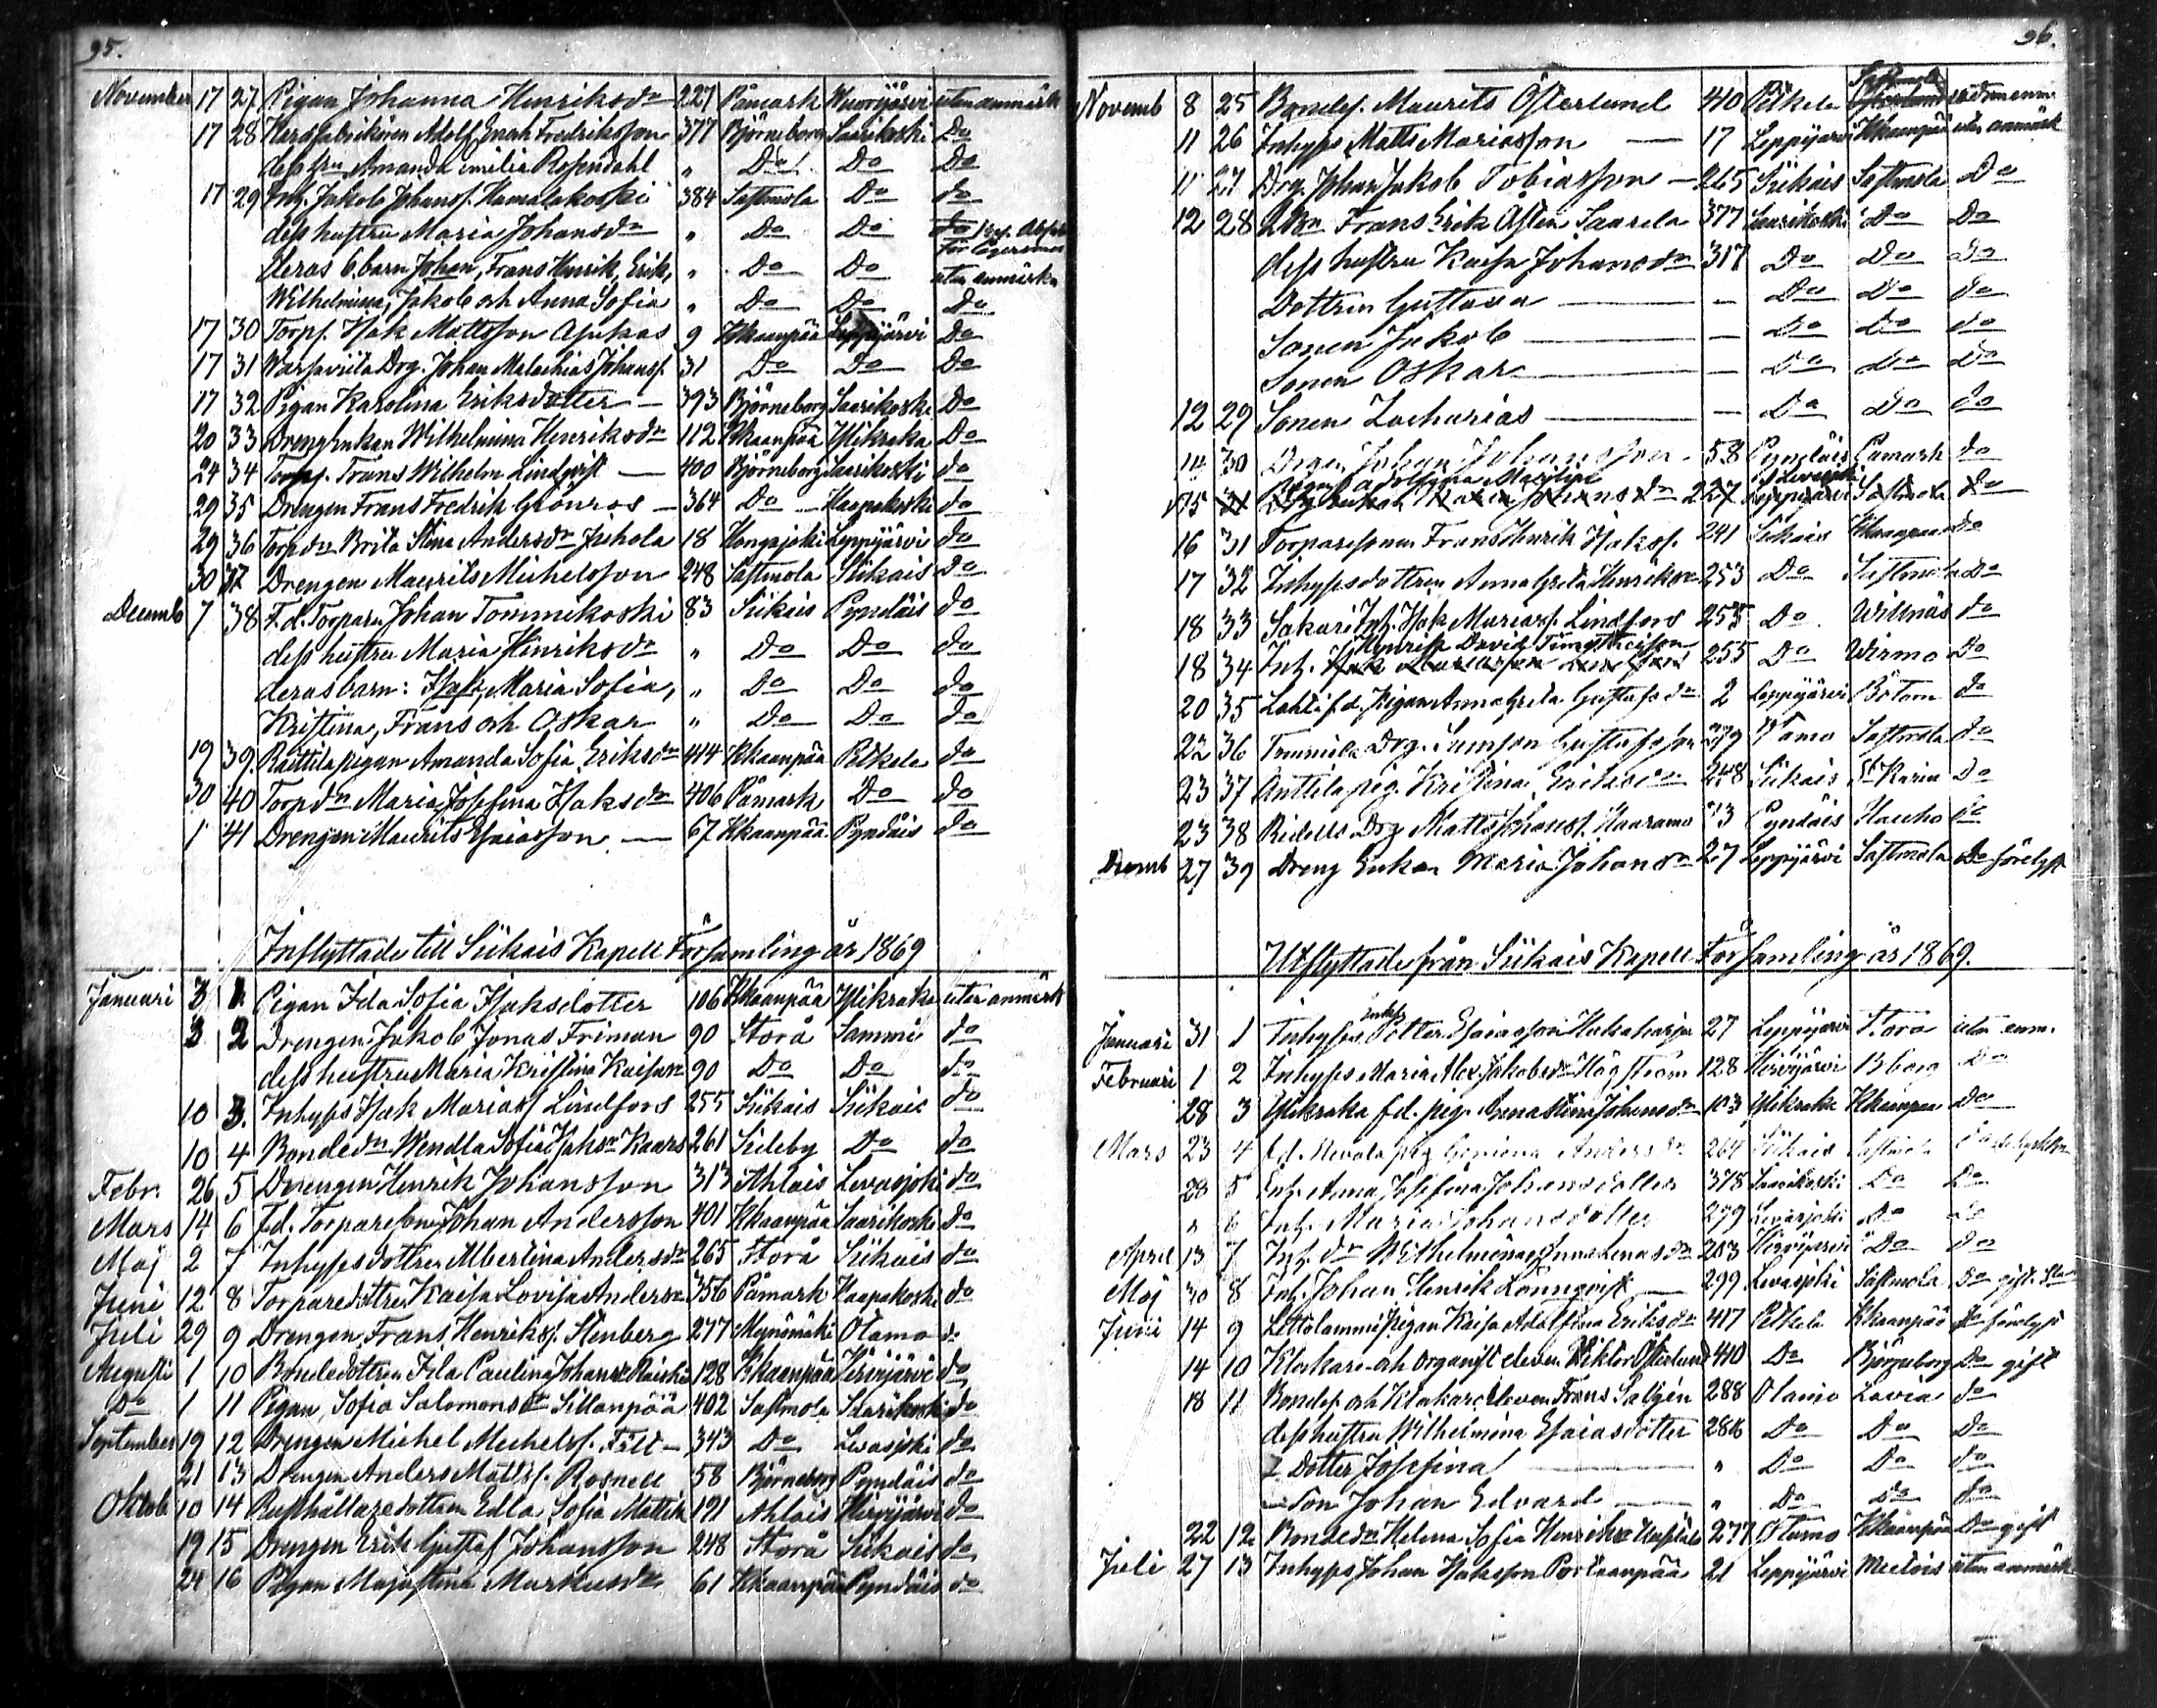 95.
November 17 27 Pigan Johanna Henriksdr 227 Påmark utan anmärk
17 28 Adolf Enoch Fredriksson 377 Björneborg Saarikoski Do
dess fru Amanda Emilia Rosendahl " Do Do Do
17 29 Inh. Jakob Johanss. Hamalakoski 384 Sastmola Do do
dess hustru Maria Johansdr " Do Do
deras 6 barn Johan, Frans Henrik, Erik, " Do Do utan anmärkn
Wilhelmina, Jakob och Anna Sofia " Do Do Do
17 30 Torp. Isak Mattsson 9 Kkaanpää Leppijärvi Do
17 31 Drg. Johan Malachias Johanss. 31 Do Do Do
17 32 Pigan Karolina Eriksdotter — 393 Björneborg Saarikoski Do
20 33 Drengenkan Wilhelmina Henriksdr 112 Kkaanpää Ylikraka Do
24 34 Torps. Frans Wilhelm Lindqvist — 400 Björneborg Saarikoski do
29 35 Drengen Frans Fredrik Grönros — 364 Do Haapakoski do
29 36 Torpdr Brita Stina Andersdr Juhola 18 Hongojoki Leppijärvi do
30 37 Drengen Maurits Michelsson 248 Sastmola Siikais Do
Decemb 7 38 F.d. Torparen Johan Tommikoski 83 Siikais Pyndäis do
dess hustru Maria Henriksdr " Do Do do
deras barn: Isak, Maria Sofia, " Do Do do
Kristina, Frans och Oskar " Do Do do
19 39. Raittila pigan Amanda Sofia Eriksdr 414 Kkaanpää Petkele do
30 40 Torpdr Maria Josefina Isaksdr 406 Påmark Do do
1 41 Drengen Maurits Esaiasson — 67 Kkaanpää Pyndäis do
Inflyttade till Siikais Kapell Församling år 1869
Januari 3 1. Pigan Ida Sofia Isaksdotter 106 Kkaanpää Ylikraka utan anmärk
3 2 Drengen Jakob Jonas Friman 90 Storå Sammi do
dess hustru Maria Kristina 90 Do Do do
10 3. Inhyss Isak Mariass Lindfors 255 Siikais Siikais do
10 4 Bondedr Wendla Sofia Isaksdr Kaars 261 Sideby Do do
Febr. 26 5 Drengen Henrik Johansson 313 Ahlais Levasjoki do
Mars 14 6 f.d. Torparesonen Johan Andersson 401 Kkaanpää Saarikoski Do
Maj 2 7 Inhyssdottren Albertina Andersdr 265 Storå Siikais do
Juni 12 8 Torparedottren Kaisa Lovisa Andersdr 356 Påmark Haapakoski do
Juli 29 9 Drengen Frans Henrikss. Stenberg 277 Mynämäki Otamo do
Augusti 1 10 Bondedottren Ida Paulina Johansdr 128 Kkaanpää Hirvijärvi do
Do 1 11 Pigan Sofia Salomonsdr Sillanpää 402 Sastmola Saarikoski do
September 19 12 Drengen Michel Michelss. Fält — 343 Do Levasjoki do
21 13 Drengen Anders Mattss. Rosnell 58 Björneborg Pyndäis do
Oktob 10 14 Rusthållaredottren Edla Sofia Mattila 191 Ahlais Hirvijärvi do
19 15 Drengen Erik Gustaf Johansson 248 Storå Siikais do
24 16 Pigan Maja Stina Markusdr 61 Kkaanpää Pyndäis do
96.
Novemb 8 25 Bondes. Maurits Österlund 410 Petkele Sastmola
11 26 Inhyss Matts Mariasson — 17 Leppijärvi Kkaanpää utan anmärk
11 27 Drg. Johan Jakob Tobiasson — 265 Siikais Sastmola Do
12 28 Frans Erik Saarela 377 Saarikoski Do Do
dess hustru Kaisa Johansdr 317 Do Do Do
Dottren Gustava — Do Do do
Sonen Jakob — Do Do do
Sonen Oskar — Do Do Do
12 29 Sonen Zacharias — Do Do do
14 30 Drgen Johan Johansson 58 Pyndäis Påmark do
15 31 Maria Johansdr 227 Leppijärvi Sastmola do
16 31 Torparesonen Frans Henrik Isakss. 241 Siikais Kkaanpää do
17 32 Inhyssdottren Anna Greta Henriksdr 253 Do Sastmola Do
18 33 Sakari Inh. Isak Mariass. Lindfors 255 Do Willnäs do
Henrik David Timotheisson
18 34 Inh. 255 Do Wirmo Do
20 35 Lahti f.d. Pigan Anna Greta Gustafsdr 2 Leppijärvi Bötom do
22 36 Tommila Drg. Samson Gustafsson 279 Otamo Sastmola do
23 37 Anttila pig. Kristina 248 Siikais St Karin Do
23 38 Drg Matts Johanss. Haaramo 73 Pyndäis Hauho do
Decemb 27 39 Dreng Enkan Maria Johansdr 27 Leppijärvi Sastmola Do förlyst
Utflyttade från Siikais Kapell Församling år 1869.
Januari 31 1 Inhyss Petter Esaiasson Hakaharju 27 Leppijärvi Storå utan anm.
Februari 1 2 Inhyss Maria Alex. Jakobsdr Högström 128 Hirvijärvi Bborg Do
28 3 Ylikraka f.d. pig. Anna Stina Johansdr 103 Ylikraka Kkaanpää Do
Mars 23 4 f.d. pig Andersdr 264 Siikais Sastmola
28 5 Inh. Anna Josefina Johansdotter 378 Saarikoski Do Do
" 6 Inh. Maria Johansdotter 299 Levasjoki Do do
April 13 7 Inh. dr Wilhelmina Anna Lenasdr 203 Hirvijärvi Do do
Maj 30 8 Inh. Johan Henrik Lönnqvist — 299 Levasjoki Sastmola Do gift
Juni 14 9 Lettolammi Pigan Kaisa Adolfina Eriksdr 417 Petkele Kkaanpää Do förlyst
14 10 Klockare och Organist eleven Wiktor Österlund 410 Do Björneborg Do gift
18 11 Bondes. och Klockare eleven Frans Salgén 288 Otamo Lavia do
dess hustru Wilhelmina Esaiasdotter 286 Do Do Do
1 Dotter Josefina " Do Do do
— Son Johan Edvard — " Do Do do
22 12 Bondedr Helena Sofia Henriksdr 277 Otamo Kkaanpää Do gift
Juli 27 13 Inhyss Johan Isaksson Porkaanpää 21 Leppijärvi utan anmärk